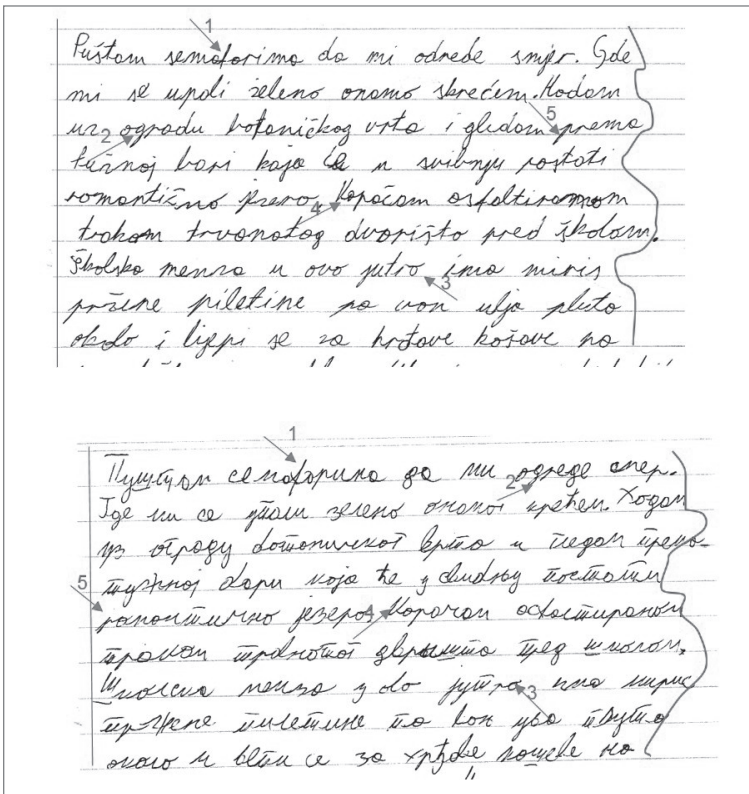 1
Puštam semaforima da mi odrede smjer. Gde
mi se upali zeleno onamo skrećem. Hodam
5
uz ogradu botaničkog vrta i gledam prema
2
tužnoj bari koja će u svibnju postati
romantično jezero. Koračam asfaltiranom
4
trakom travnatog dvorišta pred školom.
Školska menza u ovo jutro ima miris
3
pržene piletine pa vonj ulja pluta
okolo i lijepi se za hrđave košave na
1
Пуштам семафорима да ми одреде смер.
2
Где ми се упали зелено онамо крећем. Ходам
уз ограду ботаничког врта и гледам према
5
тужној бари која ће у свибњу постати
романтично језеро. Корачам асфалтираном
4
траком травнатог дворишта пред школом.
Школска менза у ово јутро има мирис
3
пржене пилетине па воњ уља плута
около и лепи се за хрђаве кошеве на